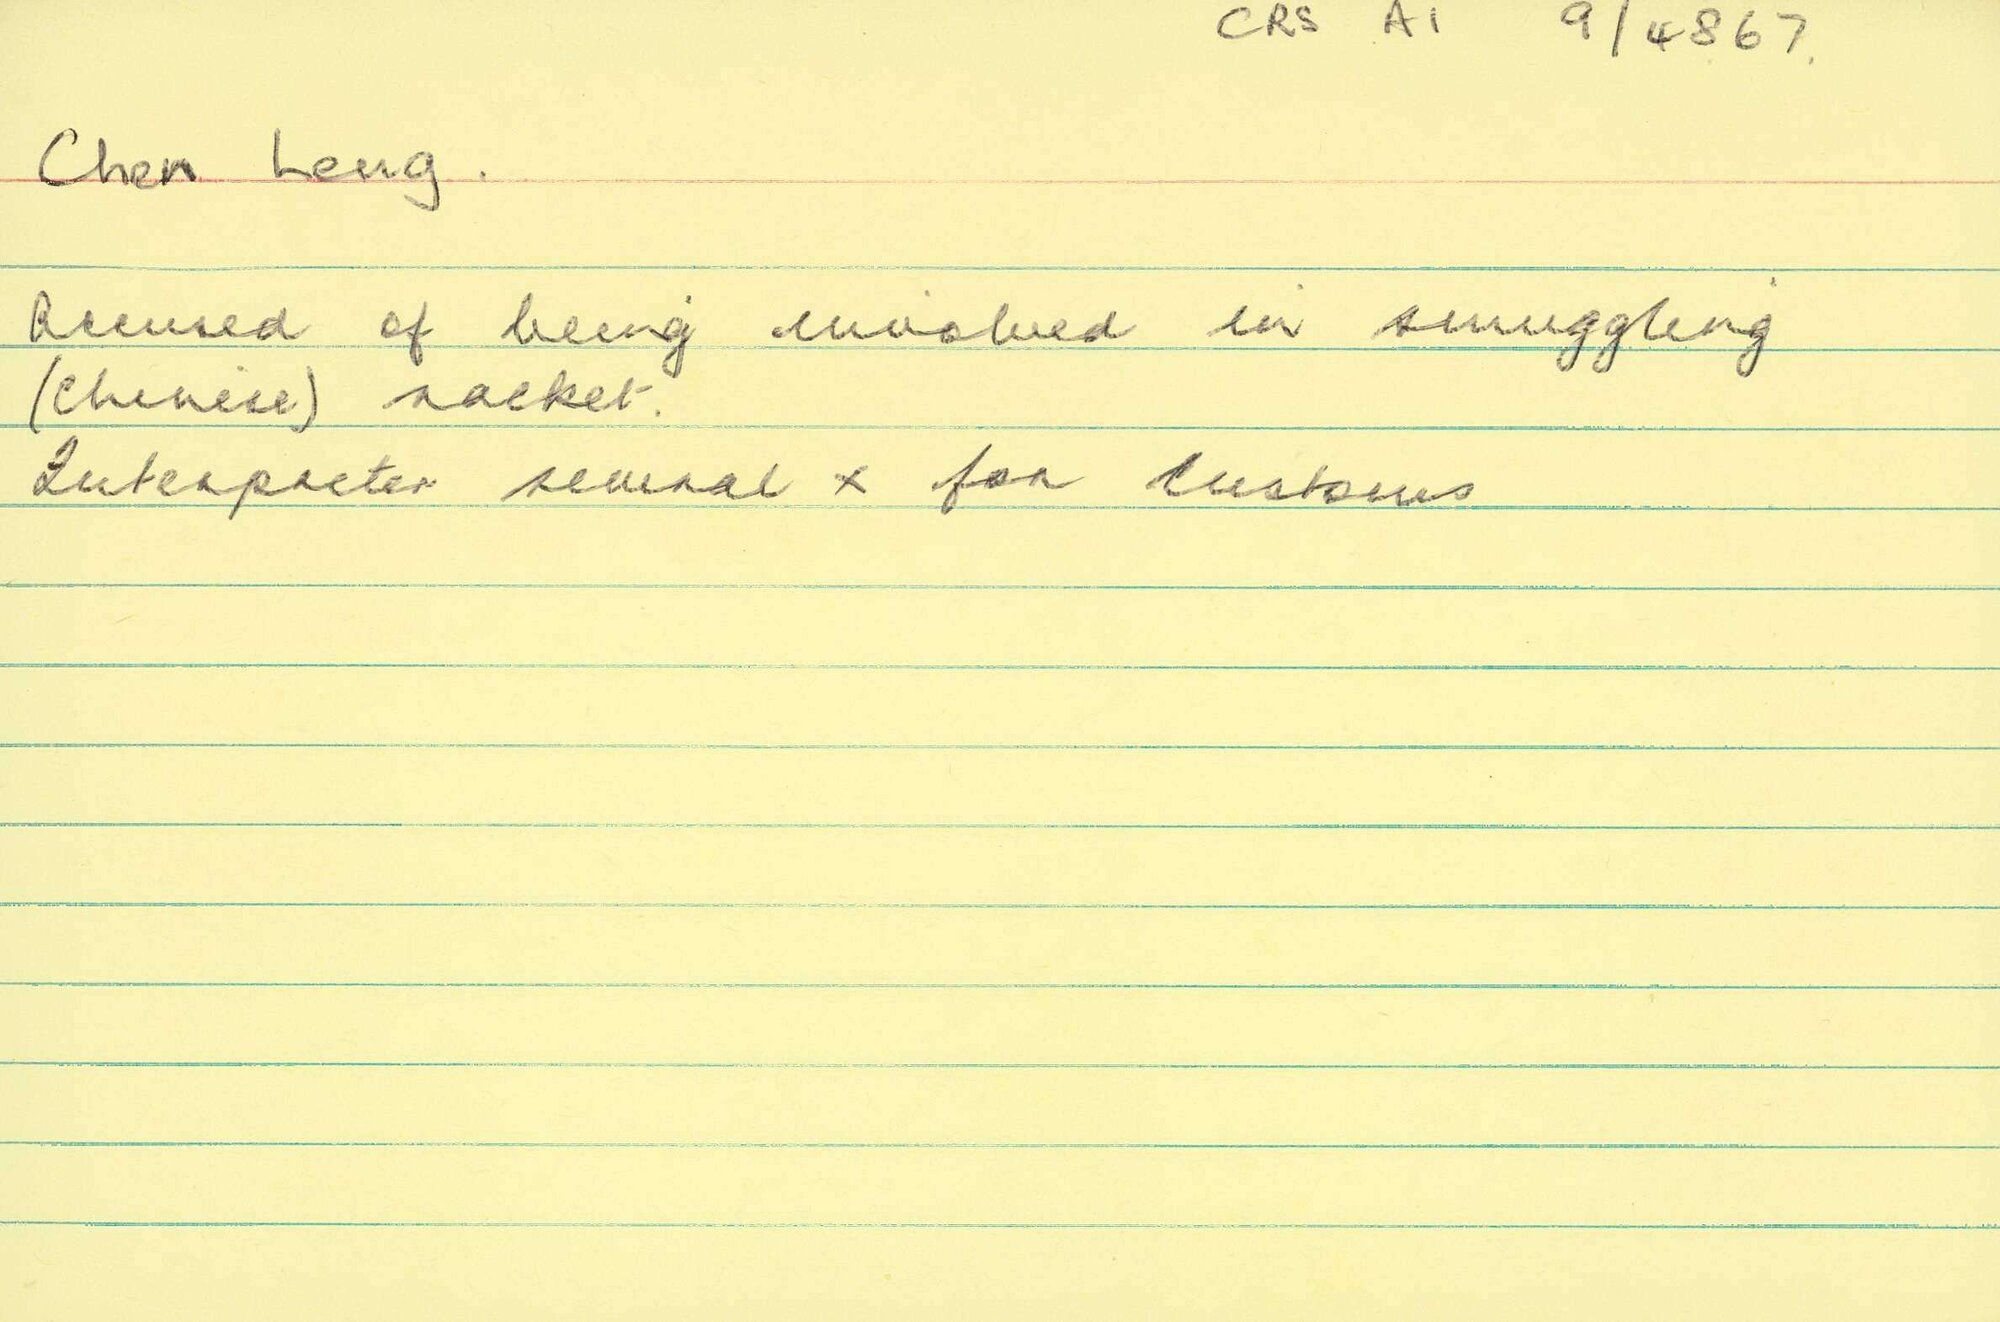 CRS A1 9/4867.
Chen Leng.
Accused of being involved in smuggling
(Chinese) racket.
Interpreter several x for Customs